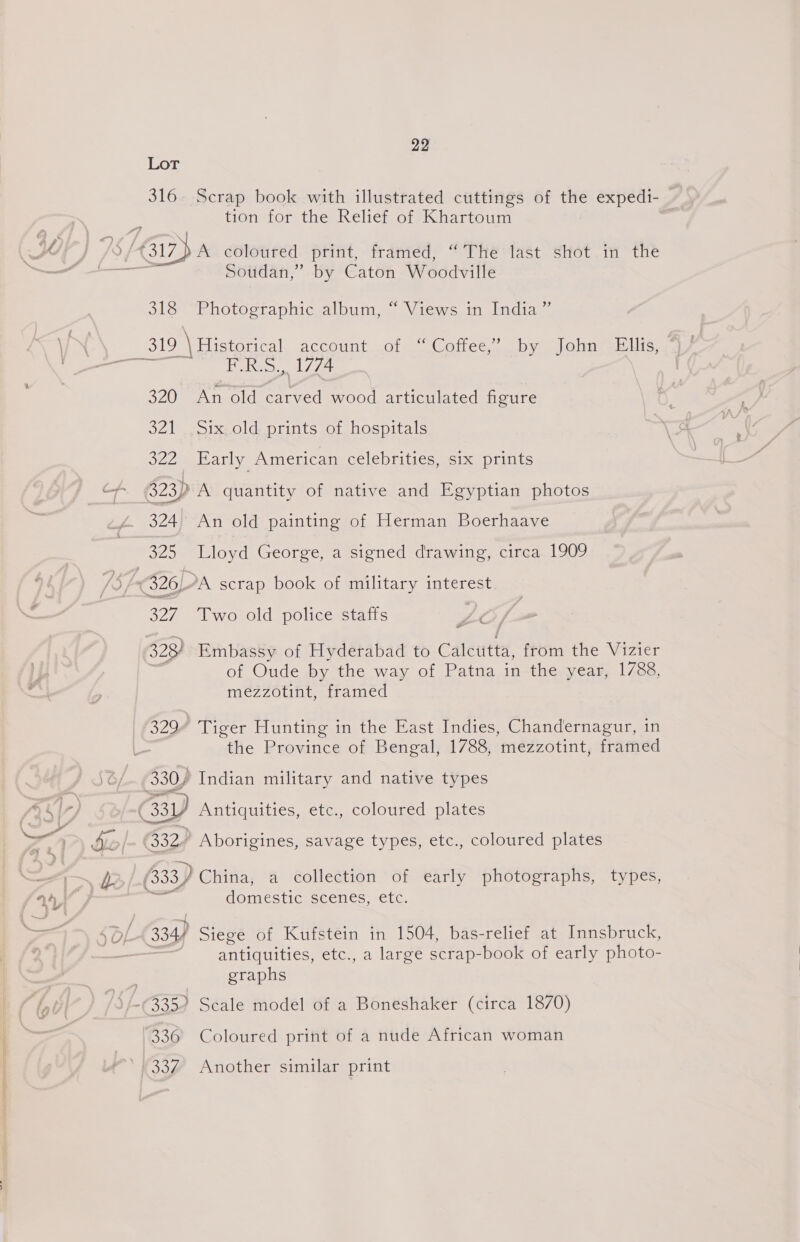 22
Lot
316 Scrap book with illustrated cuttings of the expedi-
tion for the Relief of Khartoum
15/- 317 A coloured print, framed, “The last shot in the
Soudan,” by Caton Woodville
318 Photographic album, “Views in India”
319 Historical account of “Coffee,” by John Ellis,
F.R.S., 1774
320 An old carved wood articulated figure
321 Six old prints of hospitals
322 Early American celebrities, six prints
323 A quantity of native and Egyptian photos
324 An old painting of Herman Boerhaave
325 Lloyd George, a signed drawing, circa 1909
15/- 326 A scrap book of military interest
327 Two old police staffs
328 Embassy of Hyderabad to Calcutta, from the Vizier
of Oude by the way of Patna in the year, 1788,
mezzotint, framed
329 Tiger Hunting in the East Indies, Chandernagur, in
the Province of Bengal, 1788, mezzotint, framed
330 Indian military and native types
331 Antiquities, etc., coloured plates
332 Aborigines, savage types, etc., coloured plates
333 China, a collection of early photographs, types,
domestic scenes, etc.
334 Siege of Kufstein in 1504, bas-relief at Innsbruck,
antiquities, etc., a large scrap-book of early photo-
graphs
335 Scale model of a Boneshaker (circa 1870)
336 Coloured print of a nude African woman
337 Another similar print